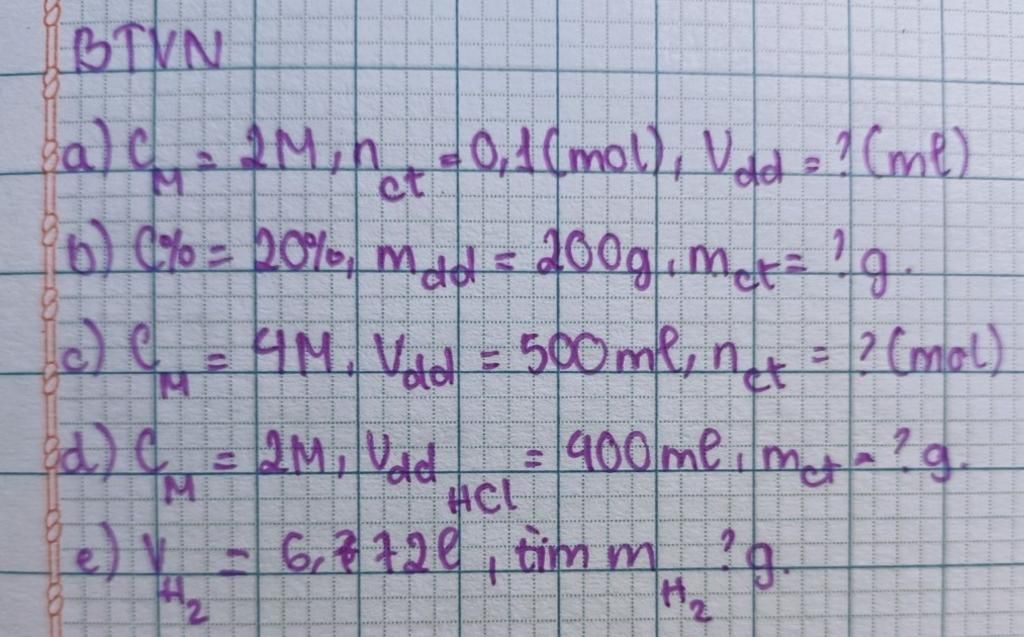 BTVN
a) C_M = 2M, n_ct = 0,1(mol), V_dd = ?(ml)
b) C% = 20%, m_dd = 200g, m_ct = ?g.
c) C_M = 4M, V_dd = 500ml, n_ct = ?(mol)
d) C_M = 2M, V_dd HCl = 400ml, m_ct = ?g.
e) V_H₂ = 6,72l, tìm m_H₂ ?g.